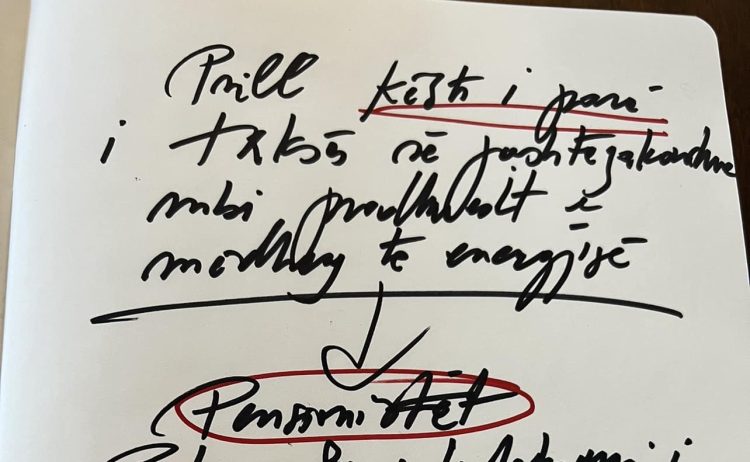 Prill këst i parë
i taksës së jashtëzakonshme
mbi prodhuesit e
mëdhenj të energjisë
Pensionistët